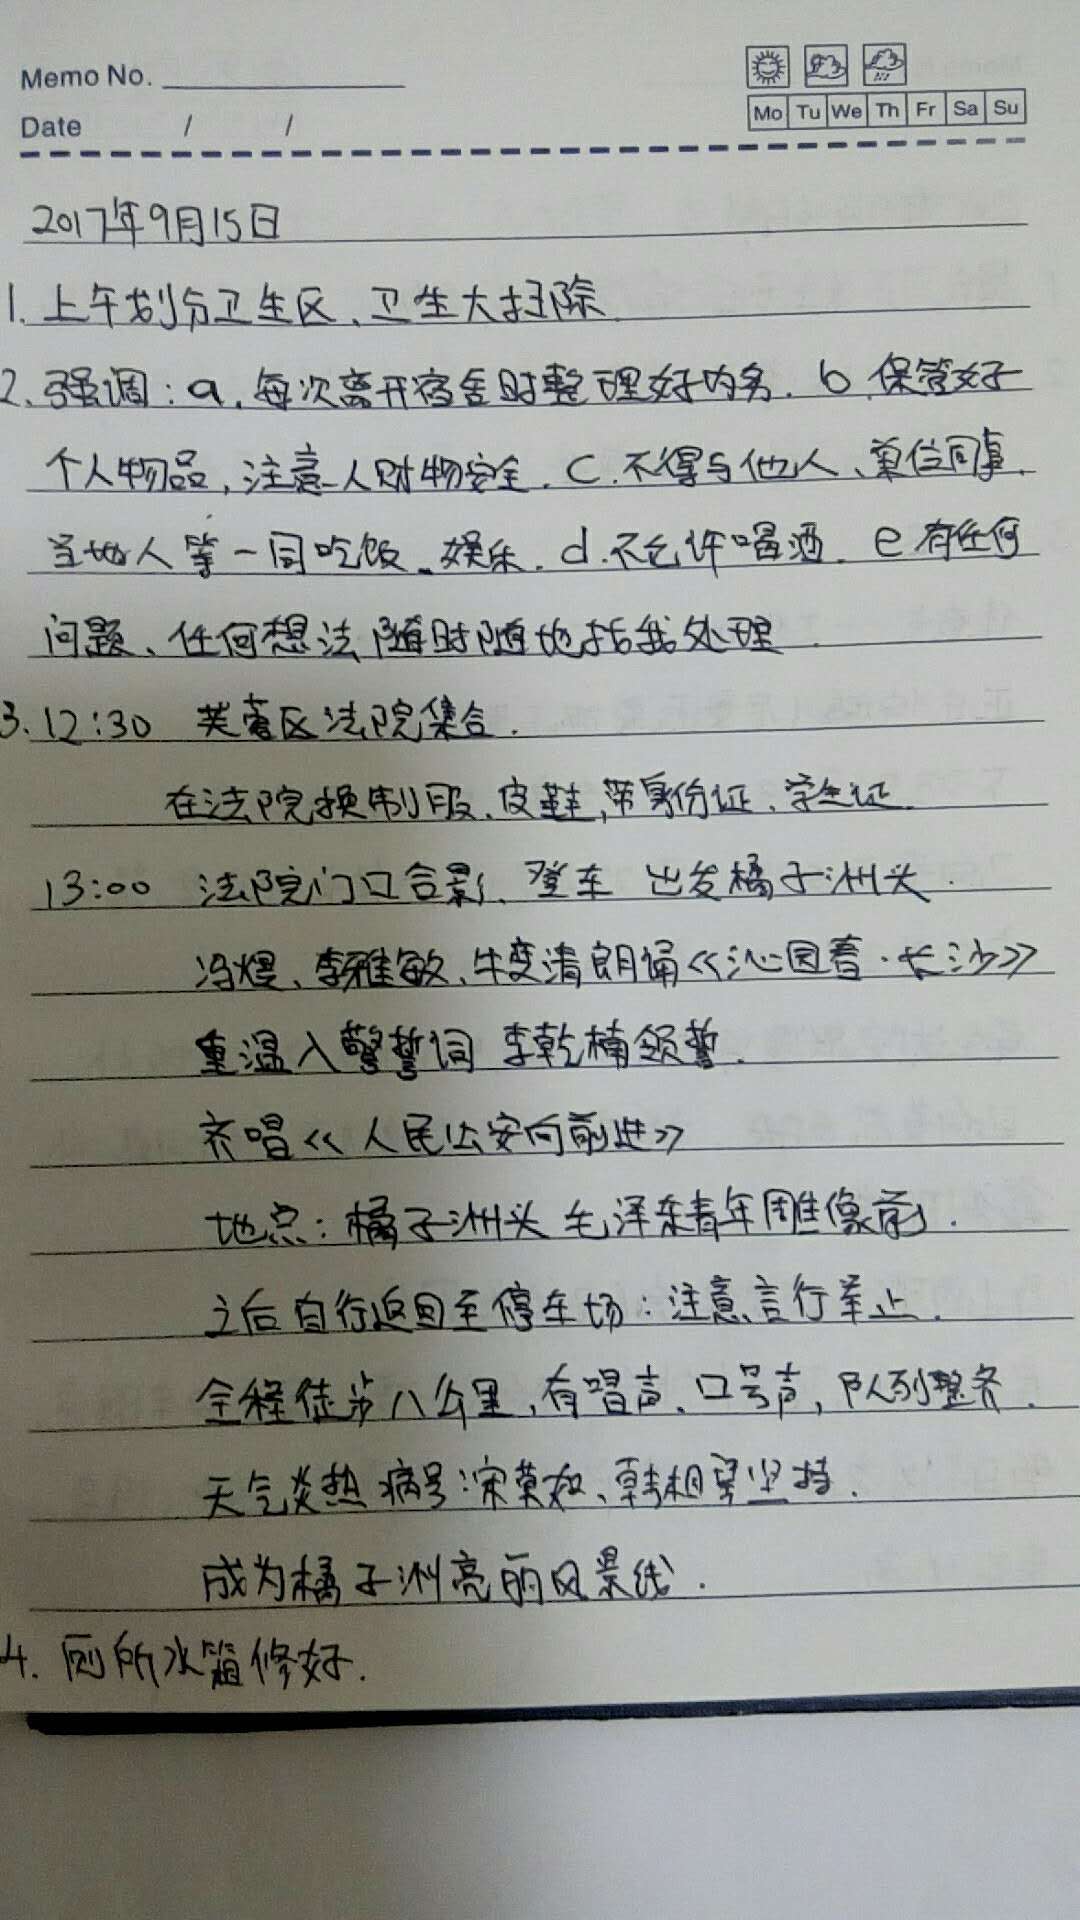 Memo No.
Date / /
Mo Tu We Th Fr Sa Su
2017年9月15日
1. 上午划分卫生区、卫生大扫除.
2. 强调：a. 每次离开宿舍时整理好内务. b. 保管好
个人物品，注意人财物安全. c. 不得与他人、单位同事、
当地人等一同吃饭、娱乐. d. 不允许喝酒. e 有任何
问题、任何想法随时随地找我处理.
3. 12:30 芙蓉区法院集合.
在法院换制服、皮鞋，带身份证、学生证.
13:00 法院门口合影、登车 出发橘子洲头.
冯煜、李雅敏、牛雯清朗诵《沁园春·长沙》
重温入警誓词 李乾楠领誓.
齐唱《人民公安向前进》
地点：橘子洲头 毛泽东青年雕像前.
之后自行返回至停车场：注意言行举止.
全程徒步八公里，有唱声、口号声，队列整齐.
天气炎热 病号：宋莫、韩相宇坚持.
成为橘子洲亮丽风景线.
4. 厕所水箱修好.